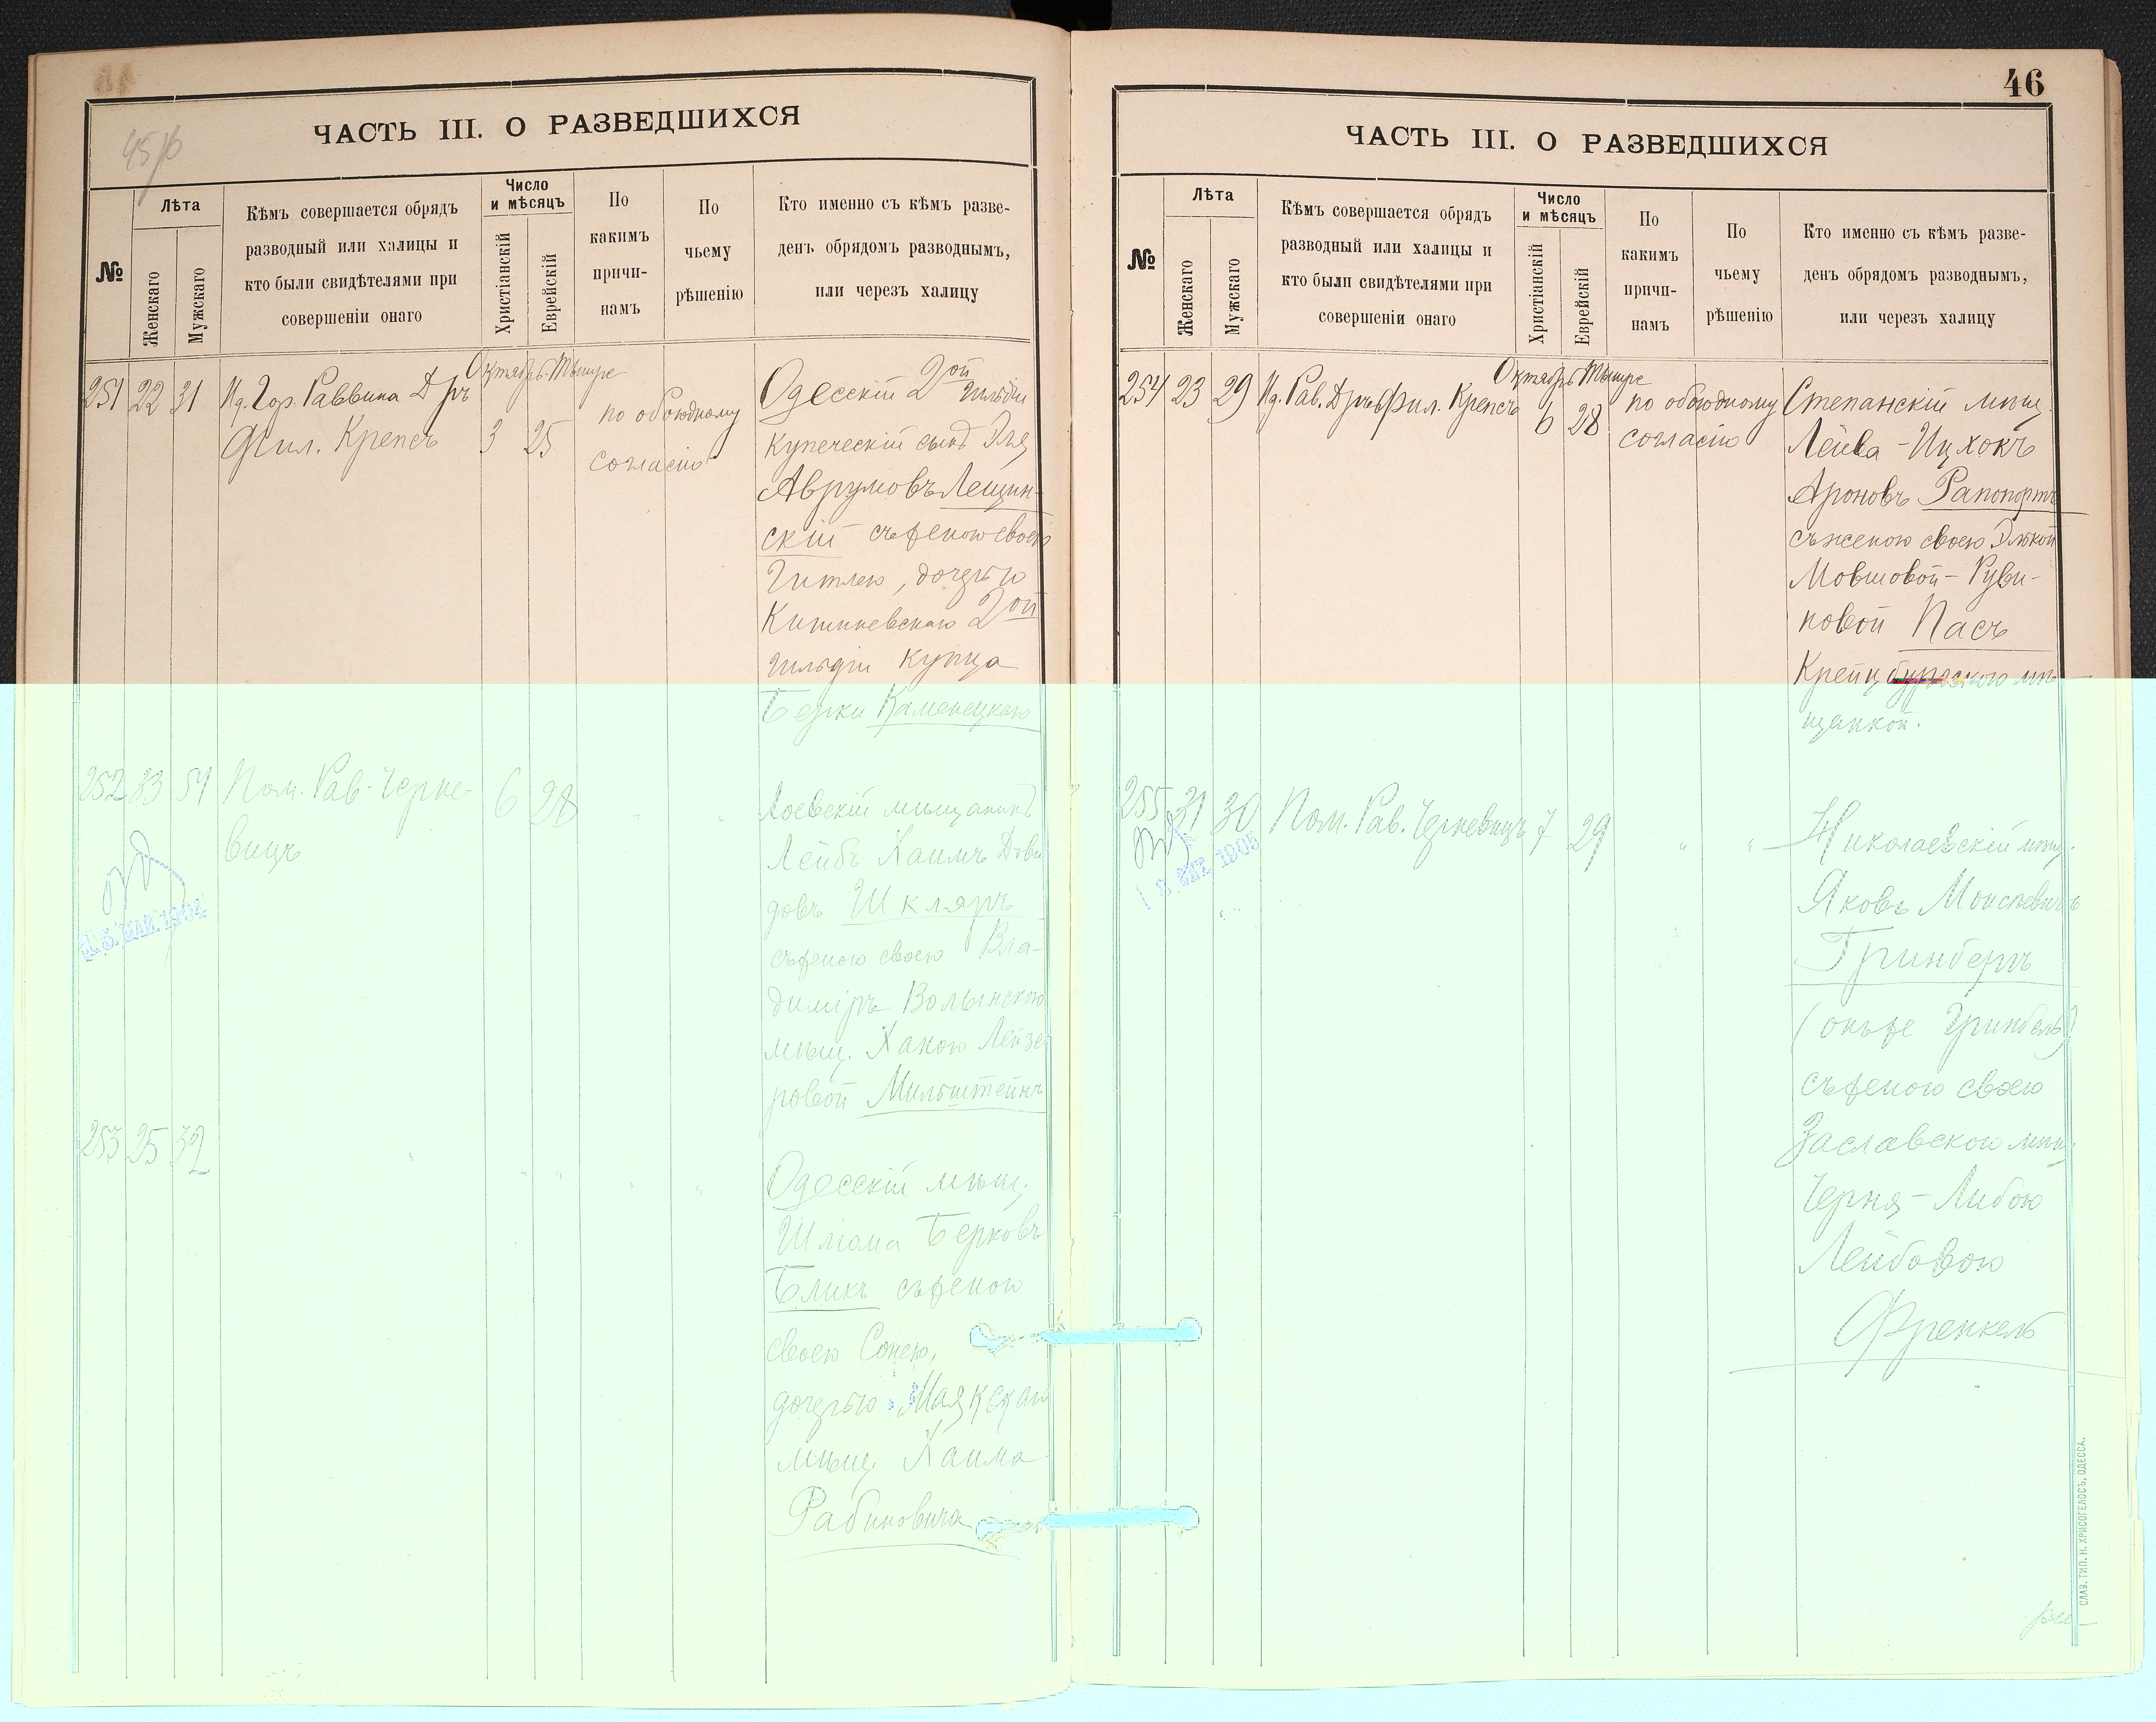 45/б
ЧАСТЬ III. О РАЗВЕДШИХСЯ
№
Лѣта
Женскаго
Мужскаго
Кѣмъ совершается обрядъ
разводный или халицы и
кто были свидѣтелями при
совершеніи онаго
Число
и мѣсяцъ
Христіанскій
Еврейскій
По
какимъ
причи-
намъ
По
чьему
рѣшенію
Кто именно съ кѣмъ разве-
денъ обрядомъ разводнымъ,
или черезъ халицу
Октябрь Тышре
251 22 31 Ид. Гор. Раввина Д ръ
Фил. Крепсъ 3 25 по обоюдному
согласію
Одесскій 2ой гильдіи
купеческій сынъ Эля
Аврумовъ Лещин-
скій съ женою своею
Гитлею, дочерью
Кишиневскаго 2ой
гильдіи купца
Берки Каменецкаго
252 33 54 Пом. Рав. Черне-
вицъ 6 28 " "
15 МАЙ 1904
Лоевскій мѣщанинъ
Лейбъ Хаимъ Дови
довъ Шкляръ
съ женою своею Вла-
диміръ Волынскою
мѣщ. Ханою Лейзе
ровой Мильштейнъ
253 25 32 " " " " "
Одесскій мѣщ.
Шлома Берковъ
Бликъ съ женою
своею Сонею,
дочерью Маякскаго
мѣщ. Хаима
Рабиновича
46
ЧАСТЬ III. О РАЗВЕДШИХСЯ
№
Лѣта
Женскаго
Мужскаго
Кѣмъ совершается обрядъ
разводный или халицы и
кто были свидѣтелями при
совершеніи онаго
Число
и мѣсяцъ
Христіанскій
Еврейскій
По
какимъ
причи-
намъ
По
чьему
рѣшенію
Кто именно съ кѣмъ разве-
денъ обрядомъ разводнымъ,
или черезъ халицу
Октябрь Тышре
254 23 29 Ид. Рав. Д ръ Фил. Крепсъ 6 28 по обоюдному
согласію
Степанскій мѣщ.
Лейва-Ицхокъ
Ароновъ Рапопортъ
съ женою своею Элькой
Мовшовой-Руви-
новой Пасъ
Крейцбургскою мѣ-
щанкой.
255 31 30 Пом. Рав. Черневицъ 7 29 " "
1905
Николаевскій мѣщ.
Яковъ Моисѣевичъ
Гринбергъ
(онъ же Гринбель)
съ женою своею
Заславскою мѣщ.
Черня-Либою
Лейбовою
Френкель
СЛАВ. ТИП. Н. ХРИСОГЕЛОСЪ, ОДЕССА.